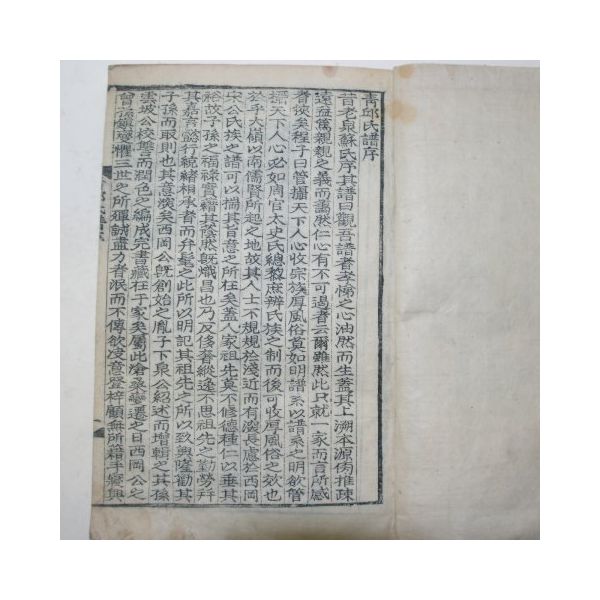 青邱氏譜序
昔老泉蘇氏序其譜曰觀吾譜者孝悌之心油然而生蓋其上溯本源傍推疎
遠益篤親親之義而藹然仁心有不可遏者云爾雖然此只就一家而言所感
者狹矣程子曰管攝天下人心收宗族厚風俗莫如明譜系以譜系之明欲管
攝天下人心必如周官太史氏總敎庶辨氏族之制而後可收厚風俗之效也
於乎大嶺以南儒賢所起之地故其人士不規規於淺近而有深長慮於西岡
宋公氏族之譜可以揣其旨意之所在矣蓋人家祖先莫不修德種仁以垂其
裕故子孫之福祿實繼其蔭然旣熾昌也乃反侈奢縱逸不思祖先之勤勞幷
其嘉言懿行統緖相承者而弁髦之此所以明記其祖先之所以致興隆勸其
子孫而取則也其意深矣西岡公旣創始之胤子下泉公紹述而增輯之其孫
雲坡公校讐而潤色之編成完書藏在于家矣屬此滄桑變遷之日西岡公之
曾孫 懼三世之所殫誠盡力者泯而不傳欲浸意登梓顧無所籍手寢興